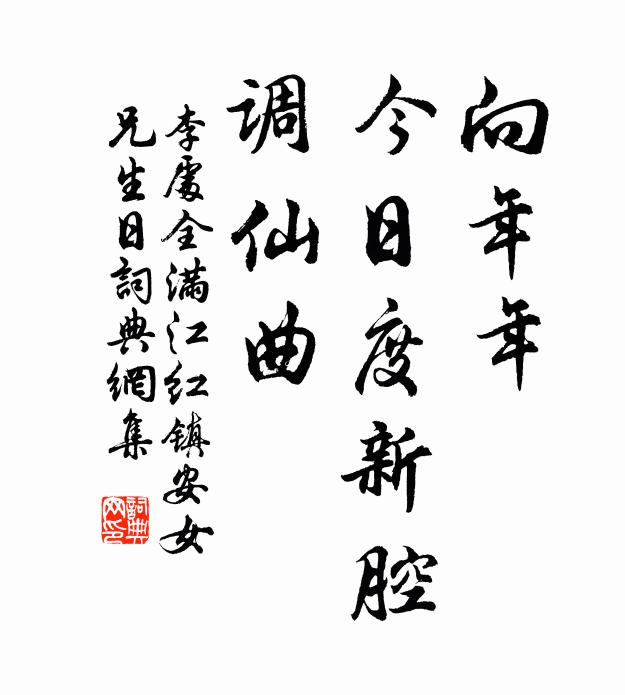 向年年
今日度新腔
调仙曲
李處全满江红镇安女
兄生日詞典網集
詞典
网印